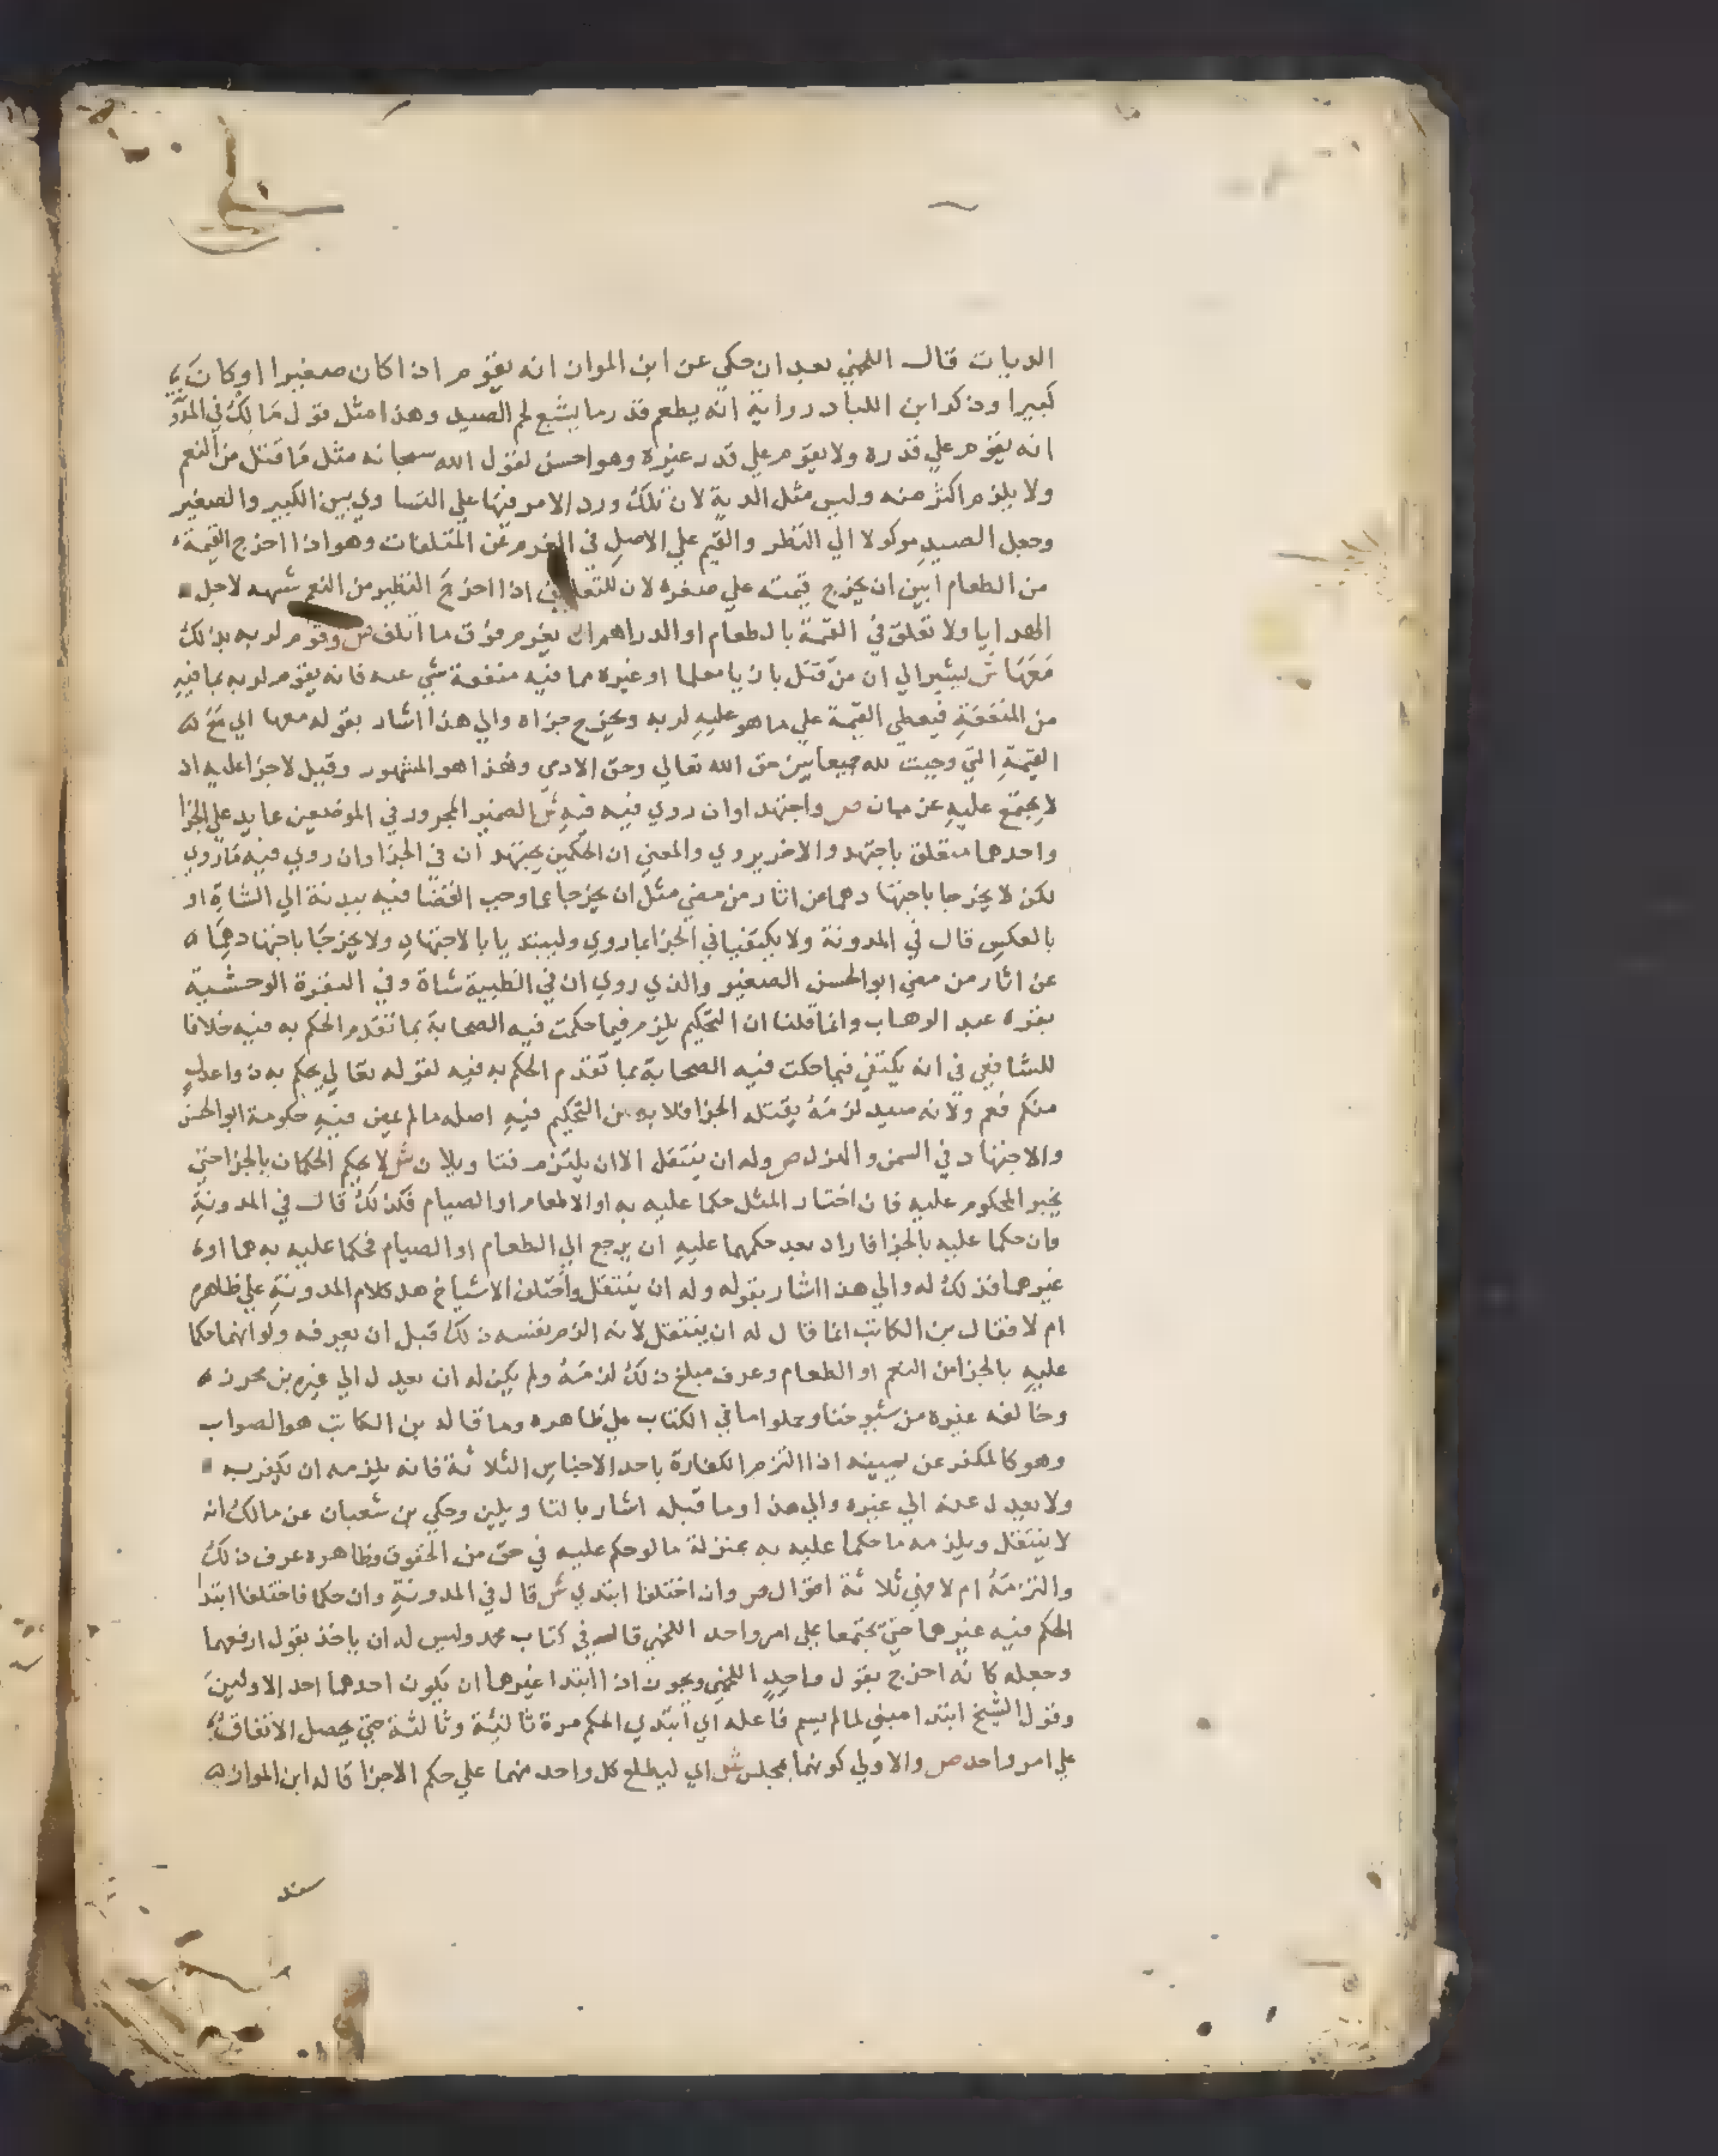 الديات قال اللخمي بعد ان حكي عن ابن المواز انه يقوم اذا كان صغيرا او كان
كبيرا وذكر ابن اللباد رواية انه يطعم قدر ما يشبع لحم الصيد وهذا مثل قول مالك في
انه يقوم علي قدره ولا يقوم علي قدر غيره وهو احسن لقول الله سبحانه مثل ما قتل من النعم
ولا يلزم اكثر منه وليس مثل الدية لان تلك ورد الامر فيها علي التساوي بين الكبير والصغير
وجعل الصيد موكولا الي النظر والقيم علي الاصل في الغرم عن المتلفات وهو اذا اخرج القيمة
من الطعام ابين ان يخرج قيمته علي صغره لان اذا اخرج النظير من النعم شبهه لاجل
الهدايا ولا تعلق في القيمة بالطعام او الدراهم ان يغرم فوق ما اتلف ص وقوم لربه بذلك
معها ش ليشير الي ان من قتل بازيا معلما او غيره مما فيه منفعة شي عيه فانه يقوم لربه بما فيه
من المنفعة فيعطي القيمة علي ما هو عليه لربه ويخرج جزاه والي هذا اشار بقوله معها اي مع
القيمة التي وجبت لله جمعا بين حق الله تعالي وحق الادمي وهذا هو المشهور وقيل لا جزا عليه اذ
لا يجتمع عليه غرمان ص واجتهدا وان روي فيه فيه ش الضمير المجرور في الموضعين عايد علي الجزا
واحدهما متعلق باجتهد والاخر بروي والمعني ان الحكمين يجتهدان في الجزا وان روي فيه ما روي
لكن لا يخرجا باجتهادهما عن اثار من مضي مثل ان يخرجا عما وجب القضا فيه ببدنة الي الشاة او
بالعكس قال في المدونة ولا يكتفيا في الجزا بما روي وليبتديا بالاجتهاد ولا يخرجا باجتهادهما
عن اثار من مضي ابو الحسن الصغير والذي روي ان في الظبية شاة وفي البقرة الوحشية
بقره عبد الوهاب وانما قلنا ان التحكيم يلزم فيما حكمت فيه الصحابة بما تقدم الحكم به فيه خلافا
للشافعي في انه يكتفي فيما حكت فيه الصحابة بما تقدم الحكم به فيه لقوله تعالي يحكم به ذوا عدل
منكم فعم ولانه صيد لزمه بقتله الجزا فلا بد من التحكيم فيه اصله ما لم عين فيه حكومة ابو الحسن
والاجتهاد في السمن والهزل ص وله ان ينتقل الا ان يلتزم فتاويلان ش لا يحكم الحكمان بالجزا حتي
يخير المحكوم عليه فان اختار المثل حكما عليه به او الاطعام او الصيام فكذلك قال في المدونة
وان حكما عليه بالجزا فاراد بعد حكمهما عليه ان يرجع الي الطعام او الصيام فحكما عليه به هما او
غيرهما فذلك له والي هذا اشار بقوله وله ان ينتقل واختلف الاشياخ هل كلام المدونة علي ظاهره
ام لا فقال بن الكاتب انما قال له ان ينتقل لانه الزم نفسه ذلك قبل ان يعرفه ولو انهما حكما
عليه بالجزا من النعم او الطعام وعرف مبلغ ذلك لزمه ولم يكن له ان يعدل الي غيره بن محرز
وخالفه غيره من شيوخنا وحملوا ما في الكتاب علي ظاهره وما قاله بن الكاتب هو الصواب
وهو كالمكفر عن يمينه اذا التزم الكفارة باحد الاجناس الثلاثة فانه يلزمه ان يكفر به
ولا يعدل عنه الي غيره والي هذا وما قبله اشار بالتاويلين وحكي بن شعبان عن مالك انه
لا ينتقل ويلزمه ما حكما عليه به بمنزلة ما لو حكم عليه في حق من الحقوق وظاهره عرف ذلك
والتزمه ام لا فهي ثلاثة اقوال ص وان اختلفا ابتدي ش قال في المدونة وان حكما فاختلفا ابتدا
الحكم فيه غيرهما حتي يجتمعا علي امر واحد اللخمي قال في كتاب محمد وليس له ان ياخذ بقول ارفعهما
وجعله كانه اخرج بقول واحد اللخمي ويجوز اذا ابتدا غيرهما ان يكون احدهما احد الاولين
وقول الشيخ ابتدا مبني لما لم يسم فاعله اي ابتدي الحكم مرة ثانية وثالثة حتي يحصل الاتفاق
علي امر واحد ص والاولي كونهما بمجلس ش اي ليطلع كل واحد منهما علي حكم الاجزا قاله ابن المواز
سند